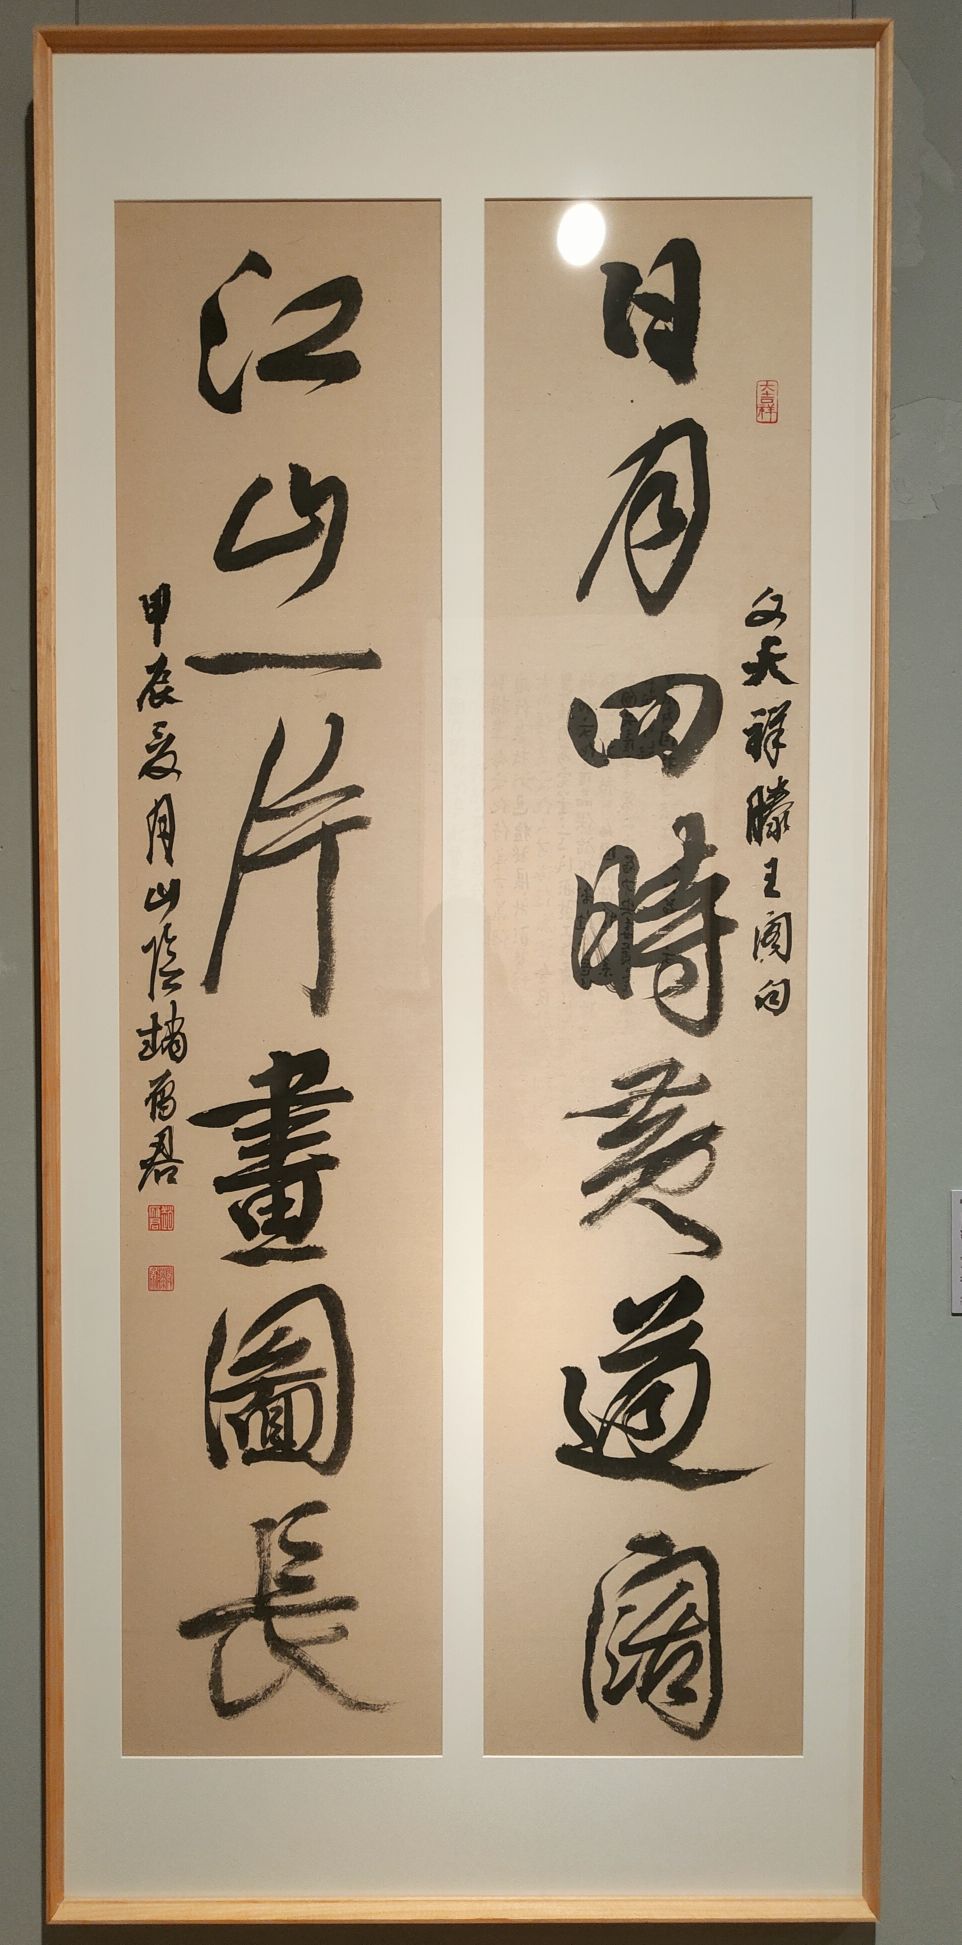 日月四時黄道阔
文天祥滕王阁句
大吉祥
江山一片畫圖長
甲辰夏月山陰趙
君